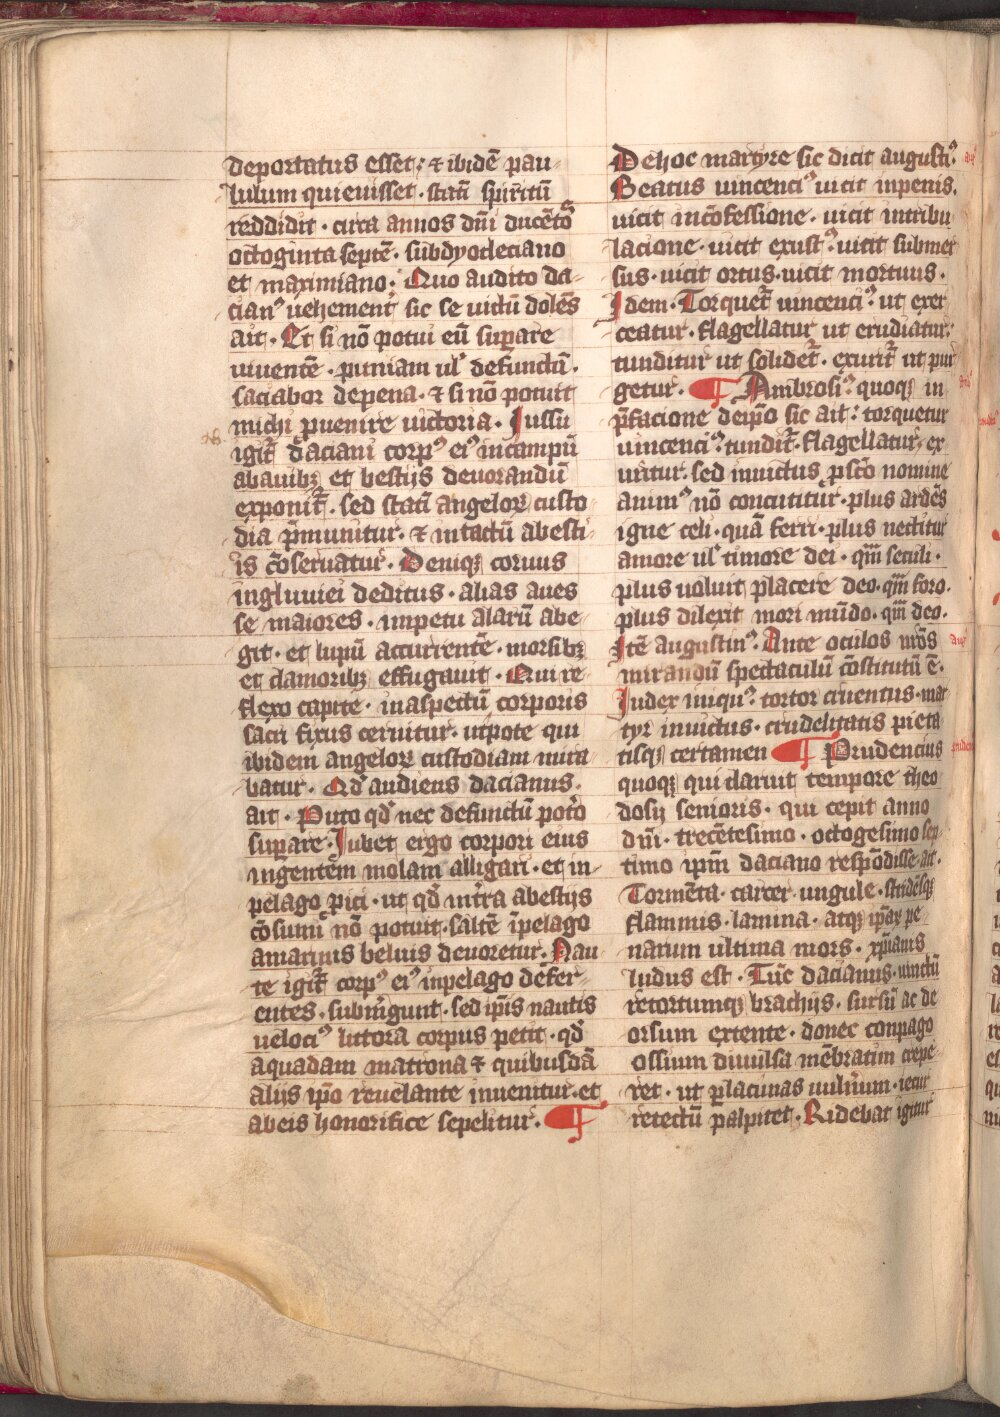 deportatus esset; ⁊ ibidē pau-
lulum quieuisset. statī spiritū
reddidit. circa annos dn̄i ducētos
octoginta septē. sub dyocleciano
et maximiano. Quo audito da-
cianꝰ uehement̄ sic se uictū dolēs
ait. Et si nō potui eū suꝑare
uiuentē. puniam ul' defunctū.
saciabor de pena. ⁊ si nō potuit
michi ꝓuenire uictoria. Iussu
igit̄ daciani corpꝰ eiꝰ in campū
a bauibꝫ et bestijs deuorandū
exponit̄. sed statī angeloꝝ custo
dia p̄munitur. ⁊ intactū a besti-
is cōseruatur. Deniqꝫ coruus
ingluuiei deditus. alias aues
se maiores. impetu alarū abe-
git. et lupū accurrentē. morsibꝫ
et clamoribꝫ effugauit. Qui re-
flexo capite. in aspectū corporis
sacri fixus cernitur. utpote qui
ibidem angeloꝝ custodiam mira
batur. Qd' audiens dacianus.
ait. Puto qd' nec defunctū pot̄o
suꝑare. Iubet ergo corpori eius
ingentem molam alligari. et in
pelago ꝓici. ut qd' in t̄ra a bestijs
cōsumi nō potuit. saltē ī pelago
a marinis beluis deuoretur. Nau-
te igit̄ corpꝰ eiꝰ in pelago defer-
entes. submergunt. sed ip̄is nautis
uelociꝰ littora corpus petit. qd'
a quadam matrona ⁊ quibusdā
aliis ip̄o reuelante inuenitur. et
ab eis honorifice sepelitur. ¶
De hoc martyre sic dicit augustīꝰ
Beatus uincenciꝰ uicit in penis.
uicit in cōfessione. uicit in tribu
lacione. uicit exustꝰ. uicit submer
sus. uicit ortus. uicit mortuus.
Idem. Torquet̄ uincenciꝰ. ut exer
ceatur. flagellatur ut erudiatur.
tunditur ut solidet̄. exurit̄ ut pur
getur. ¶ Ambrosiꝰ quoqꝫ in
p̄facione de ip̄o sic ait: torquetur
uincenciꝰ. tundit̄. flagellatur. ex
uritur. sed inuictus ꝓ sc̄o nomine
animꝰ nō concutitur. plus ardēs
igne celi. quā ferri. plus nectitur
amore ul' timore dei. qm̄ seculi.
plus uoluit placere deo. qm̄ foro.
plus dilexit mori mūdo. qm̄ deo.
Itē augustinꝰ. Ante oculos nr̄os
mirandū spectaculū cōstitutū ē.
Iudex iniquꝰ. tortor cruentus. mar
tyr inuictus. crudelitatis pieta
tisqꝫ certamen ¶ Prudencius
quoqꝫ qui claruit tempore theo
dosij senioris. qui cepit anno
dn̄i. trecētesimo. octogesimo sep
timo ip̄m daciano respōdisse ait.
Tormēta. carcer. ungule. stridēsqꝫ
flammis. lamina. atqꝫ ip̄aꝝ pe
narum ultima mors. xp̄ianis
ludus est. Tūc dacianus. uinctū
retortumqꝫ brachijs. sursū ac de
orsum extente. donec conpago
ossium diuulsa mēbratim crepe-
ret. ut ꝑ lacunas uulnīum. iecur
retectū palpitet. Ridebat igitur